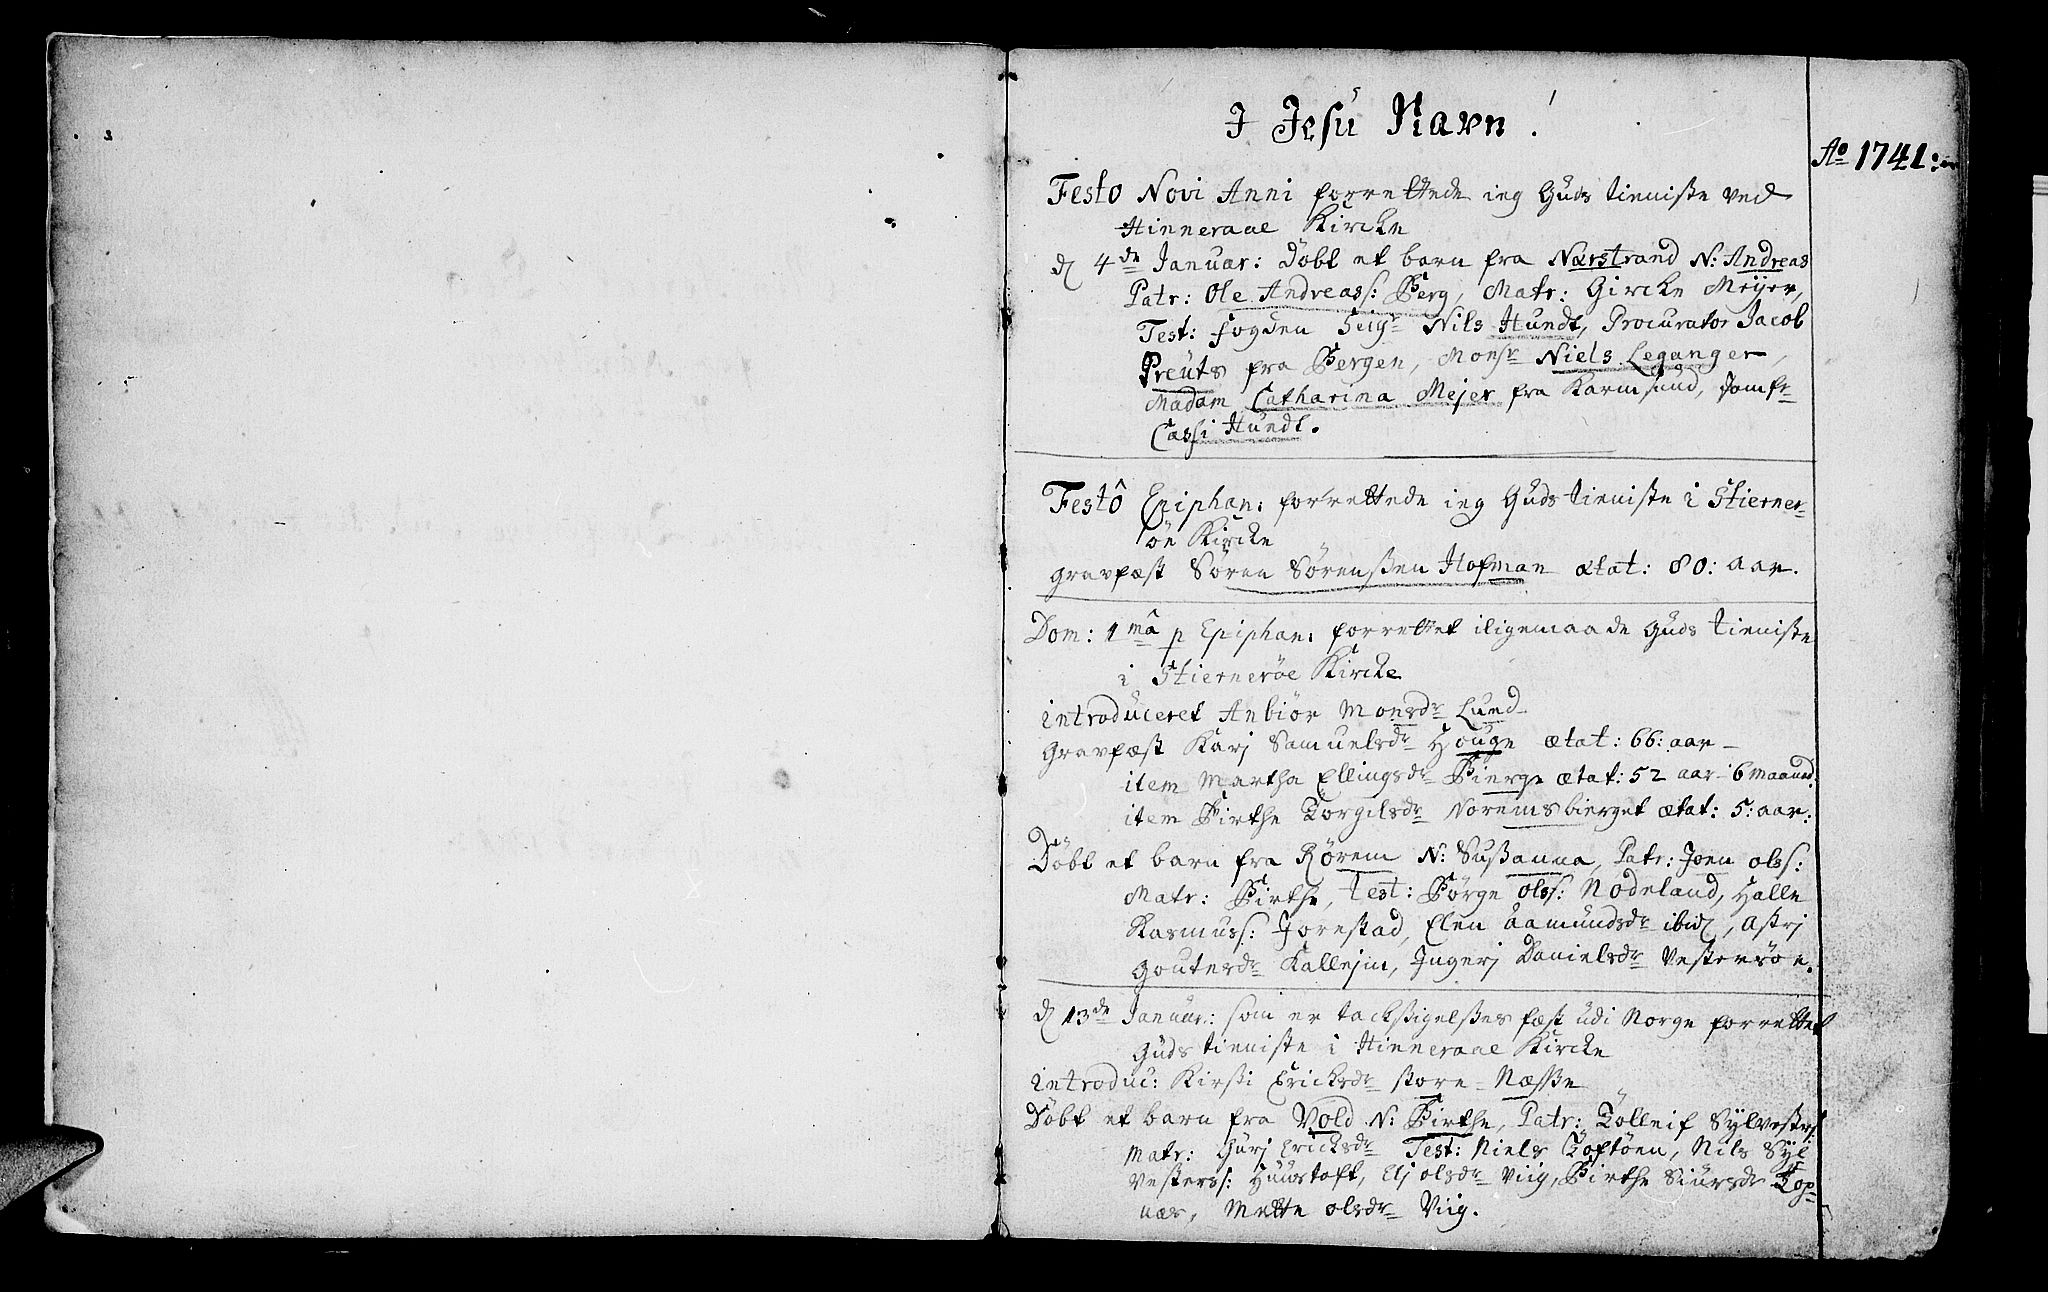 I Jesu Navn!
Ao 1741:
Festo Novi Anni forrettede ieg Guds tieniste ved
Hinneraae Kirche
d 4de Januar: Döbt et barn fra Nærstrand N: Andreas
Patr: Ole Andreass: Berg, Matr: Gircke Meijer,
Test: fogden Seigr Nils Hundt, Procurator Jacob
Preuts fra Bergen, Monsr Niels Leganger,
Madam Catharina Mejer fra Karmsund, Jomfr
Cassi Hundt.
Festô Epiphan: forrettede ieg Guds tieniste i Stierner-
öe Kircke
gravfæst Sören Sörenßen Hofman ætat: 80: aar.
Dom: 1mâ p Epiphan: forrettet iligemaade Guds tieniste
i Stierneröe Kircke
introduceret Anbiör Monsdr Lund
Gravfæst Karj Samuelsdr Houge ætat: 66: aar
item Martha Ellingsdr Bierge ætat: 52 aar 6 maaned:
item Birthe Torgilsdr Noremsbierget ætat: 5: aar:
Döbt et barn fra Rörem N: Sußanna, Patr: Joen olss:
Matr: Birthe, Test: Börge olss: Nodeland, Halle
Rasmuss: Jorestad, Elen Aamundsdr ibid, Astrj
Goutesdr Kallejm, Ingerj Danielsdr Vestersöe.
d 13de Januar: som er tacksigelßes fæst udi Norge forrettet
Guds tieniste i Hinneraae Kircke
introduc: Kirsti Ericksdr store-Næsse
Döbt et barn fra Vold N: Birthe, Patr: Tolleif Sylvesters:
Matr: Gurj Ericksdr Test: Niels Toftöen, Nils Syl
vesterss: Huustoft, Elj olsdr Viig, Birthe Siursdr Top-
næs, Mette olsdr Viig.